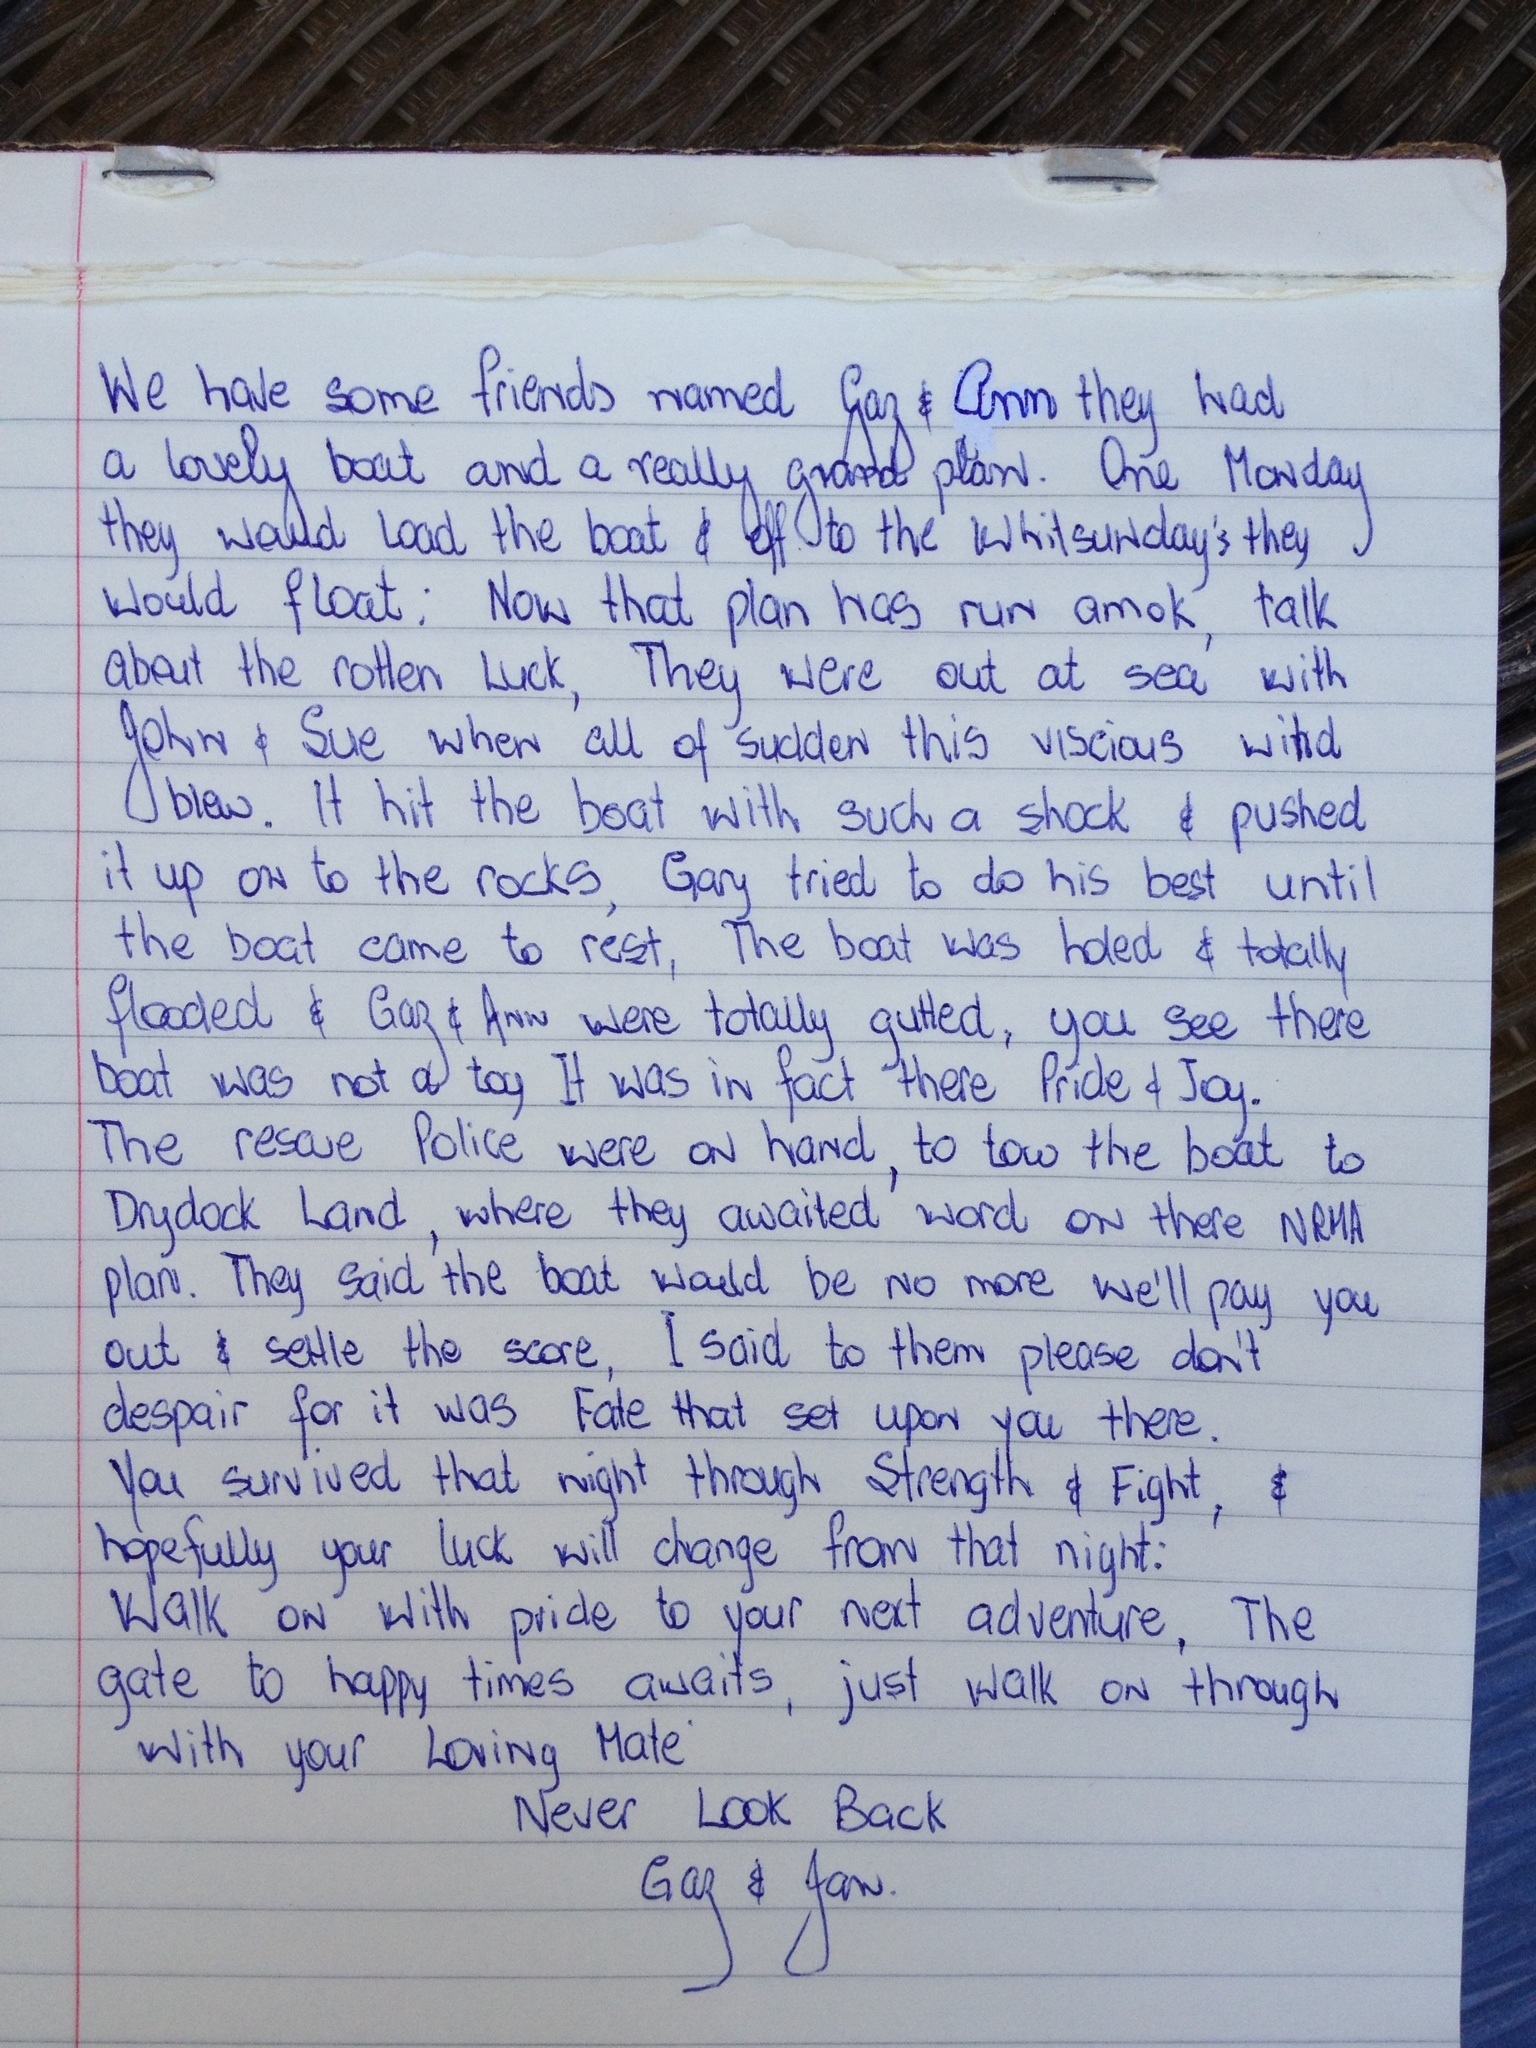 We have some friends named Gaz & Ann they had
a lovely boat and a really grand plan. One Monday
they would load the boat & off to the Whitsunday's they
would float; Now that plan has run amok, talk
about the rotten luck, They were out at sea with
John & Sue when all of sudden this viscious wind
blew. It hit the boat with such a shock & pushed
it up on to the rocks, Gary tried to do his best until
the boat came to rest, The boat was holed & totally
flooded & Gaz & Ann were totally gutted, you see there
boat was not a toy It was in fact there Pride & Joy.
The rescue Police were on hand, to tow the boat to
Drydock Land, where they awaited word on there NRMA
plan. They said the boat would be no more we'll pay you
out & settle the score, I said to them please don't
despair for it was Fate that set upon you there.
You survived that night through Strength & Fight, &
hopefully your luck will change from that night:
Walk on with pride to your next adventure, The
gate to happy times awaits, just walk on through
with your Loving Mate
Never Look Back
Gaz & Jan.